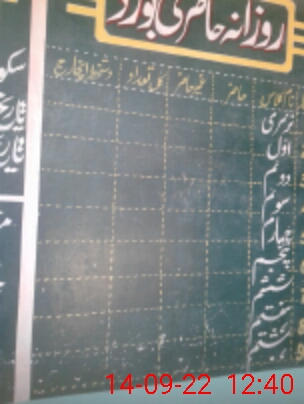 روزانہ حاضری بورڈ
نام کلاس حاضر غیر حاضر کل تعداد دستخط انچارج
نرسری
اوّل
دوئم
سوئم
چہارم
پنجم
ششم
ہفتم
ہشتم
14-09-22 12:40